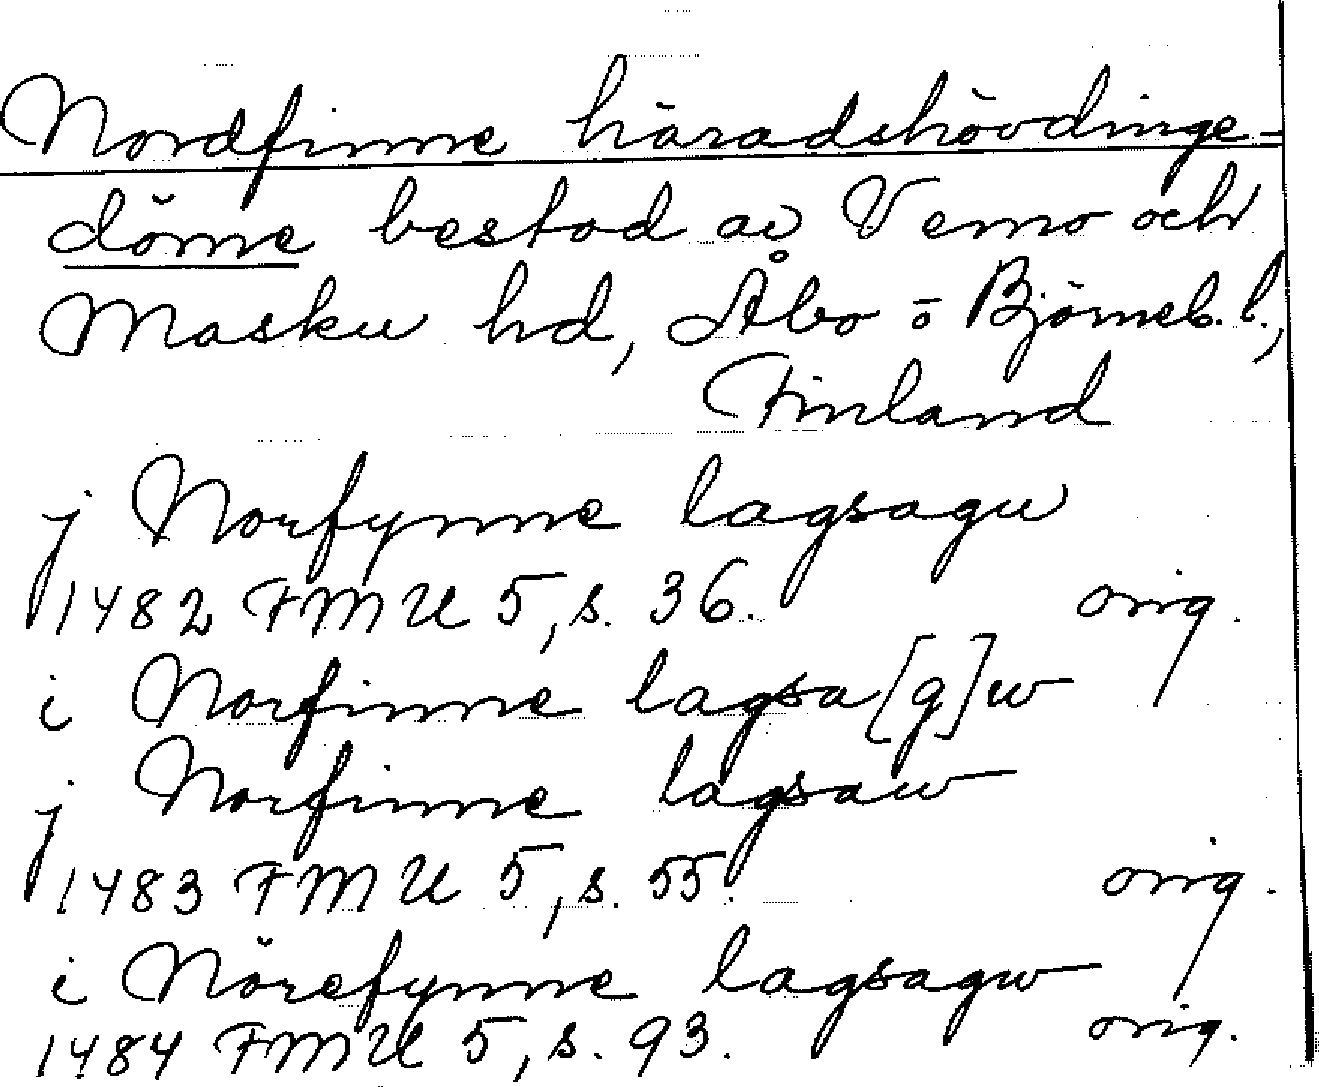 Nordfinne häradshövdinge-
döme bestod av Vemo och
Masku hd, Åbo o Björneb. l.,
Finland
j Norfynne lagsagu
1482 FMU 5, s. 36. orig.
i Norfinne lagsa[g]w
j Norfinne lagsaw
1483 FMU 5, s. 55. orig.
i Nörefynne lagsagw
1484 FMU 5, s. 93. orig.